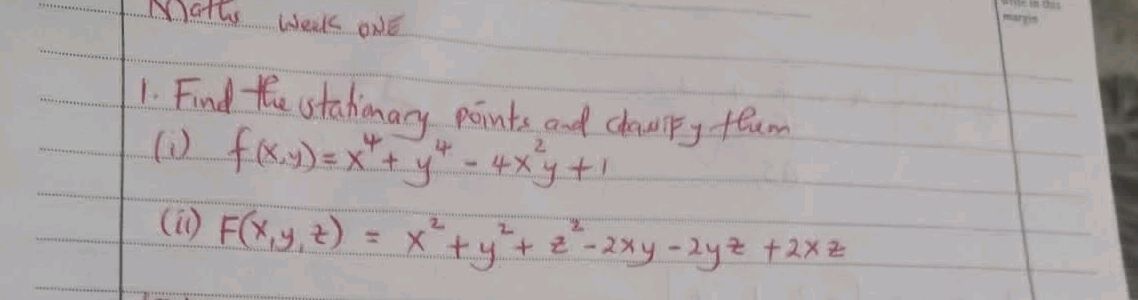 Maths Week ONE
write in this
margin
1. Find the stationary points and classify them
(i) f(x,y) = x⁴ + y⁴ - 4x²y + 1
(ii) F(x,y,z) = x² + y² + z² - 2xy - 2yz + 2xz